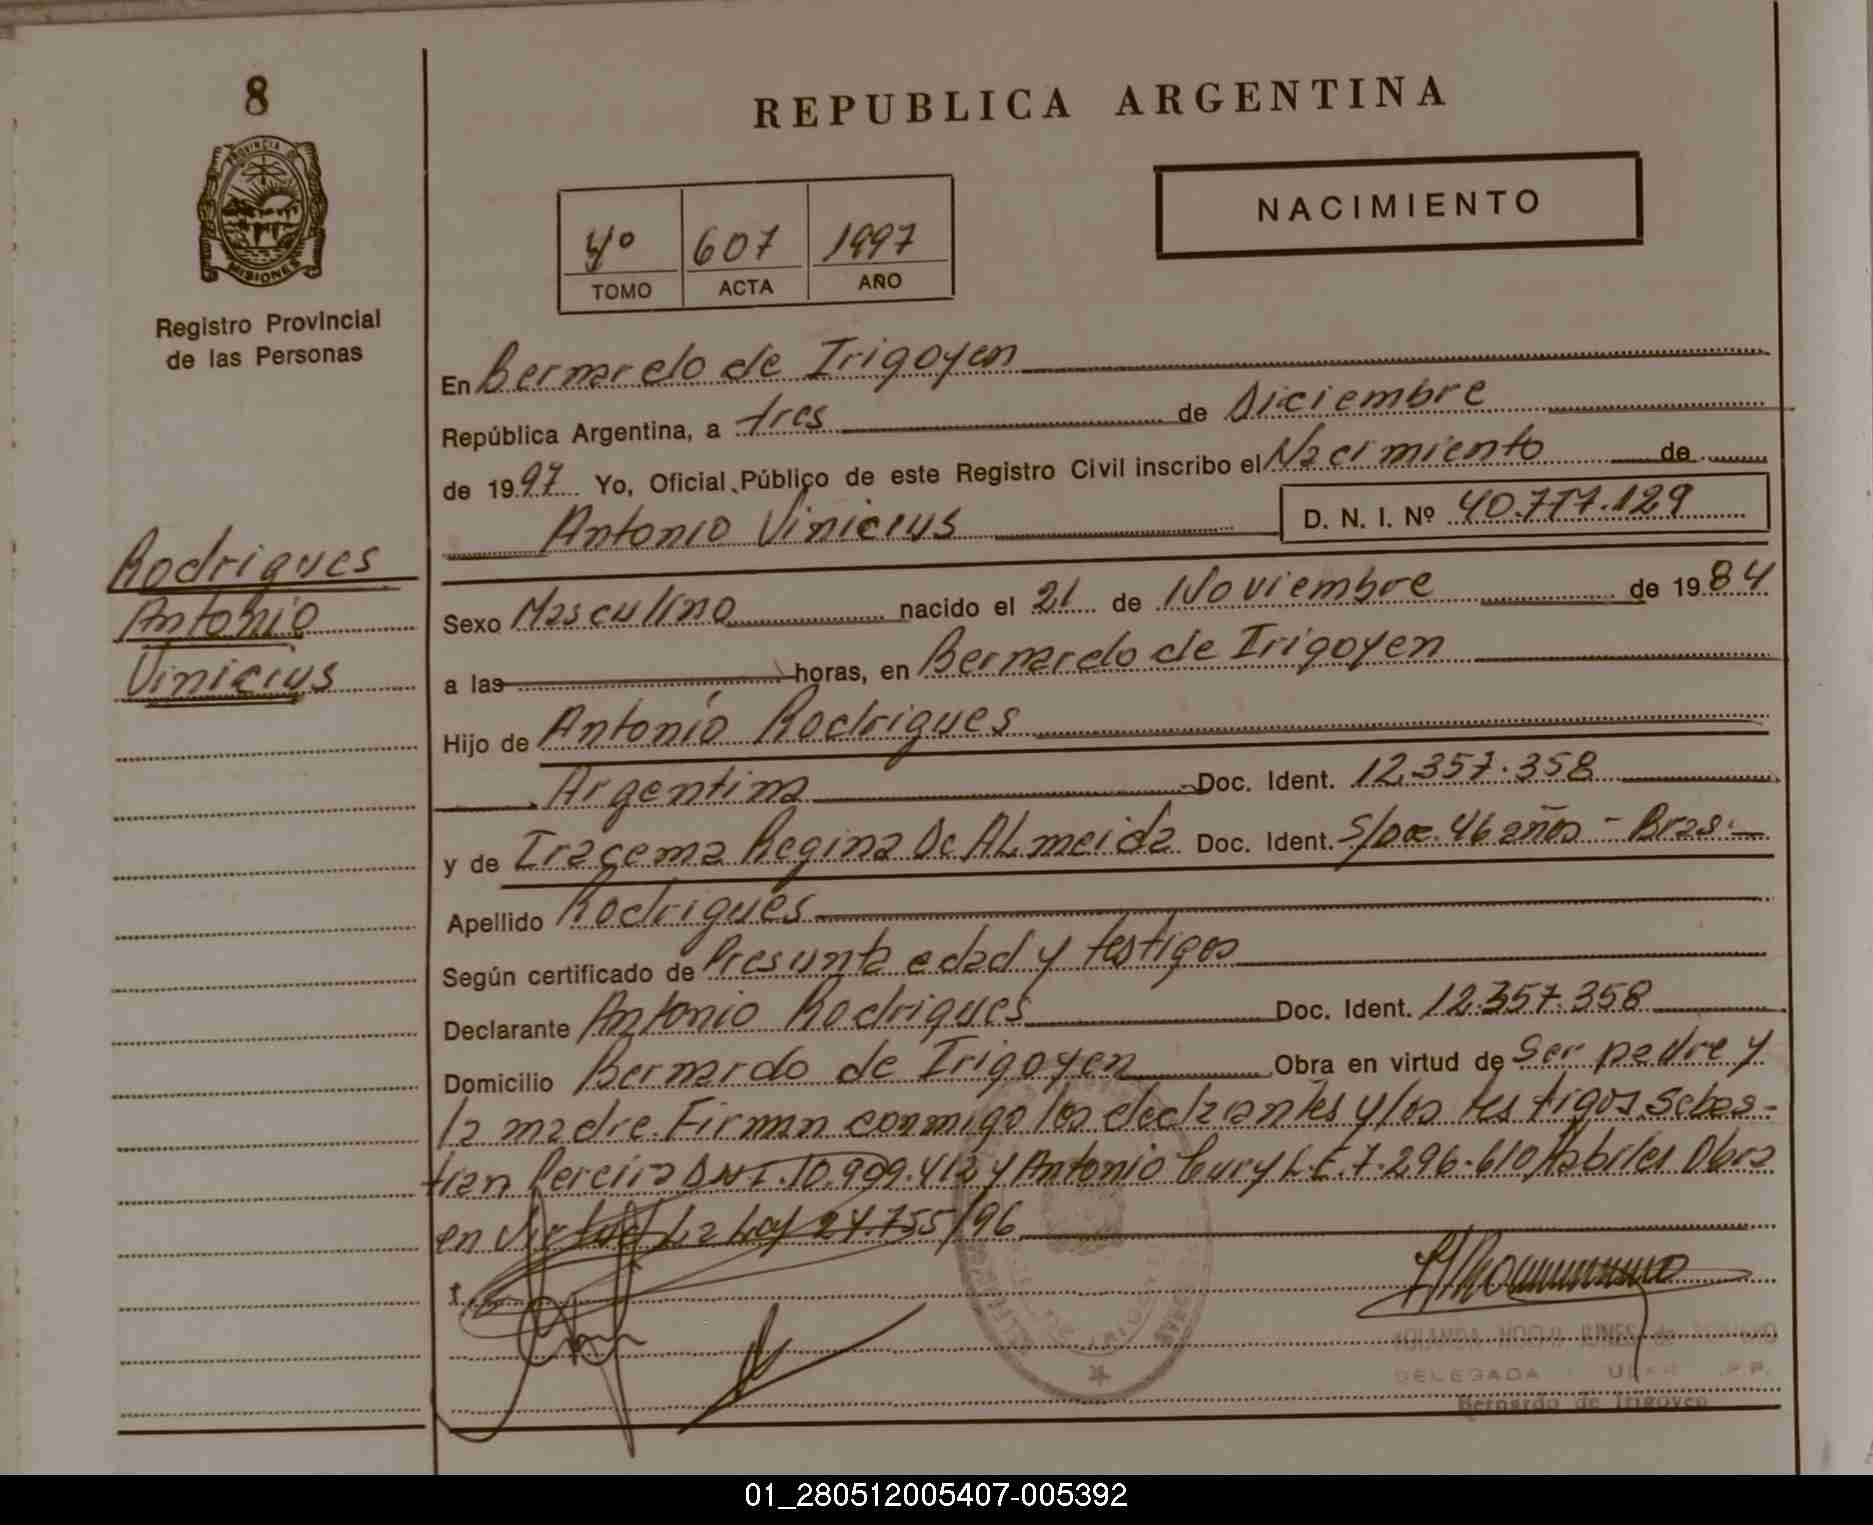 8
PROVINCIA DE
MISIONES
Registro Provincial
de las Personas
Rodrigues
Antonio
Vinicius
REPUBLICA ARGENTINA
NACIMIENTO
4º 607 1997
TOMO ACTA AÑO
En Bernardo de Irigoyen
República Argentina, a tres de Diciembre
de 1997 Yo, Oficial Público de este Registro Civil inscribo el Nacimiento de
Antonio Vinicius D. N. I. Nº 40.777.129
Sexo Masculino nacido el 21 de Noviembre de 1984
a las horas, en Bernardo de Irigoyen
Hijo de Antonio Rodrigues
Argentina Doc. Ident. 12.357.358
y de Iracema Regina De ALmeida Doc. Ident. S/Doc. 46 años - Bras.
Apellido Rodrigues
Según certificado de Presunta edad y testigos
Declarante Antonio Rodrigues Doc. Ident. 12.357.358
Domicilio Bernardo de Irigoyen Obra en virtud de Ser padre y
la madre. Firman conmigo los declarantes y los testigos Sebas-
tian Pereira DNI. 10.909.412 y Antonio Cury L.E. 7.296.610, habiles Obra
en virtud La Ley 24.755/96
DELEGADA
Bernardo de Irigoyen
01_280512005407-005392